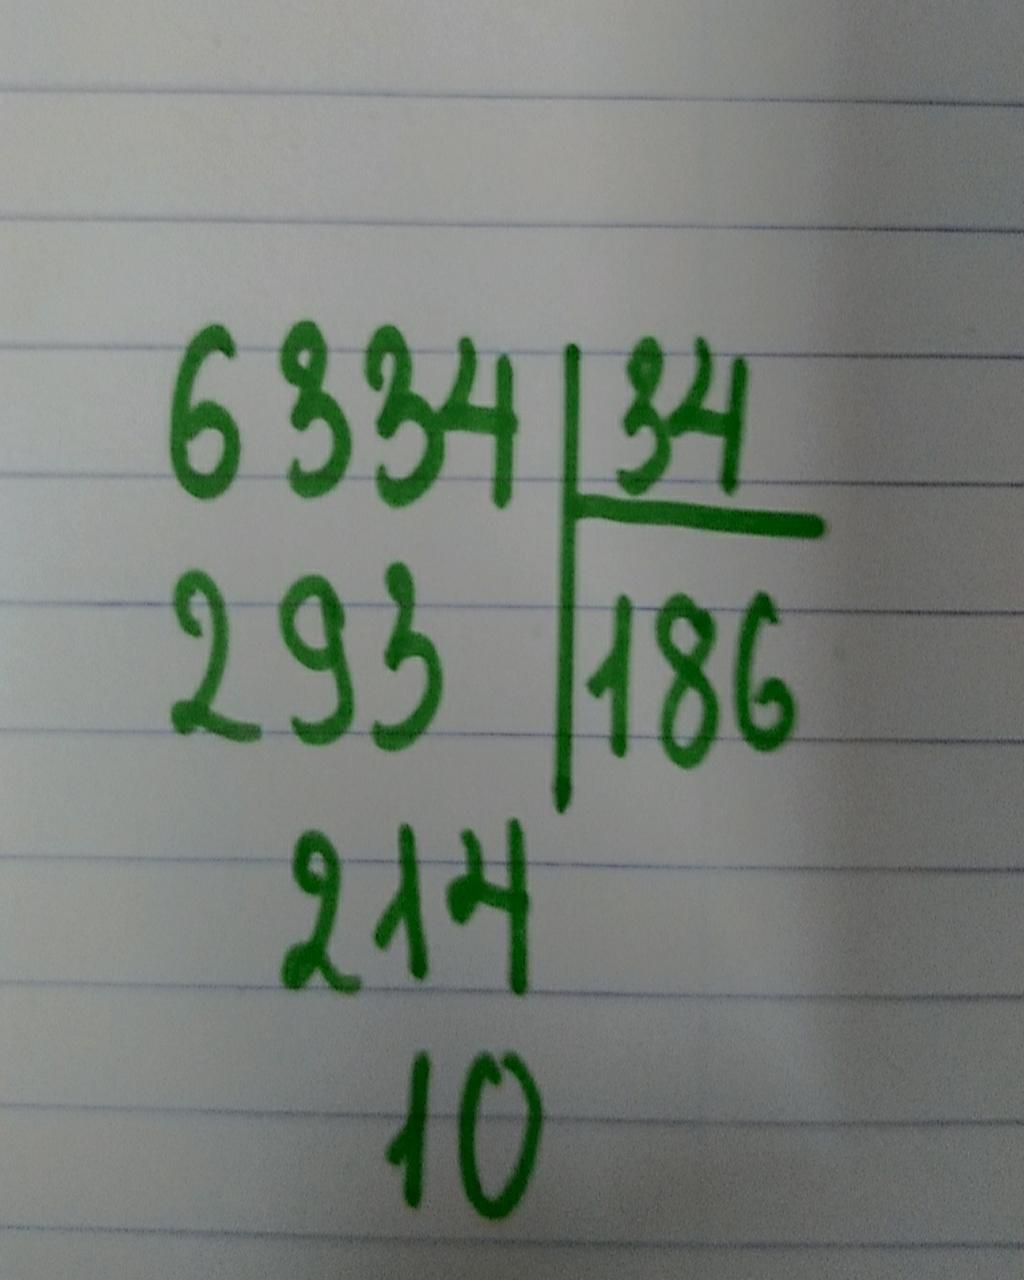 6334 34
293 186
214
10